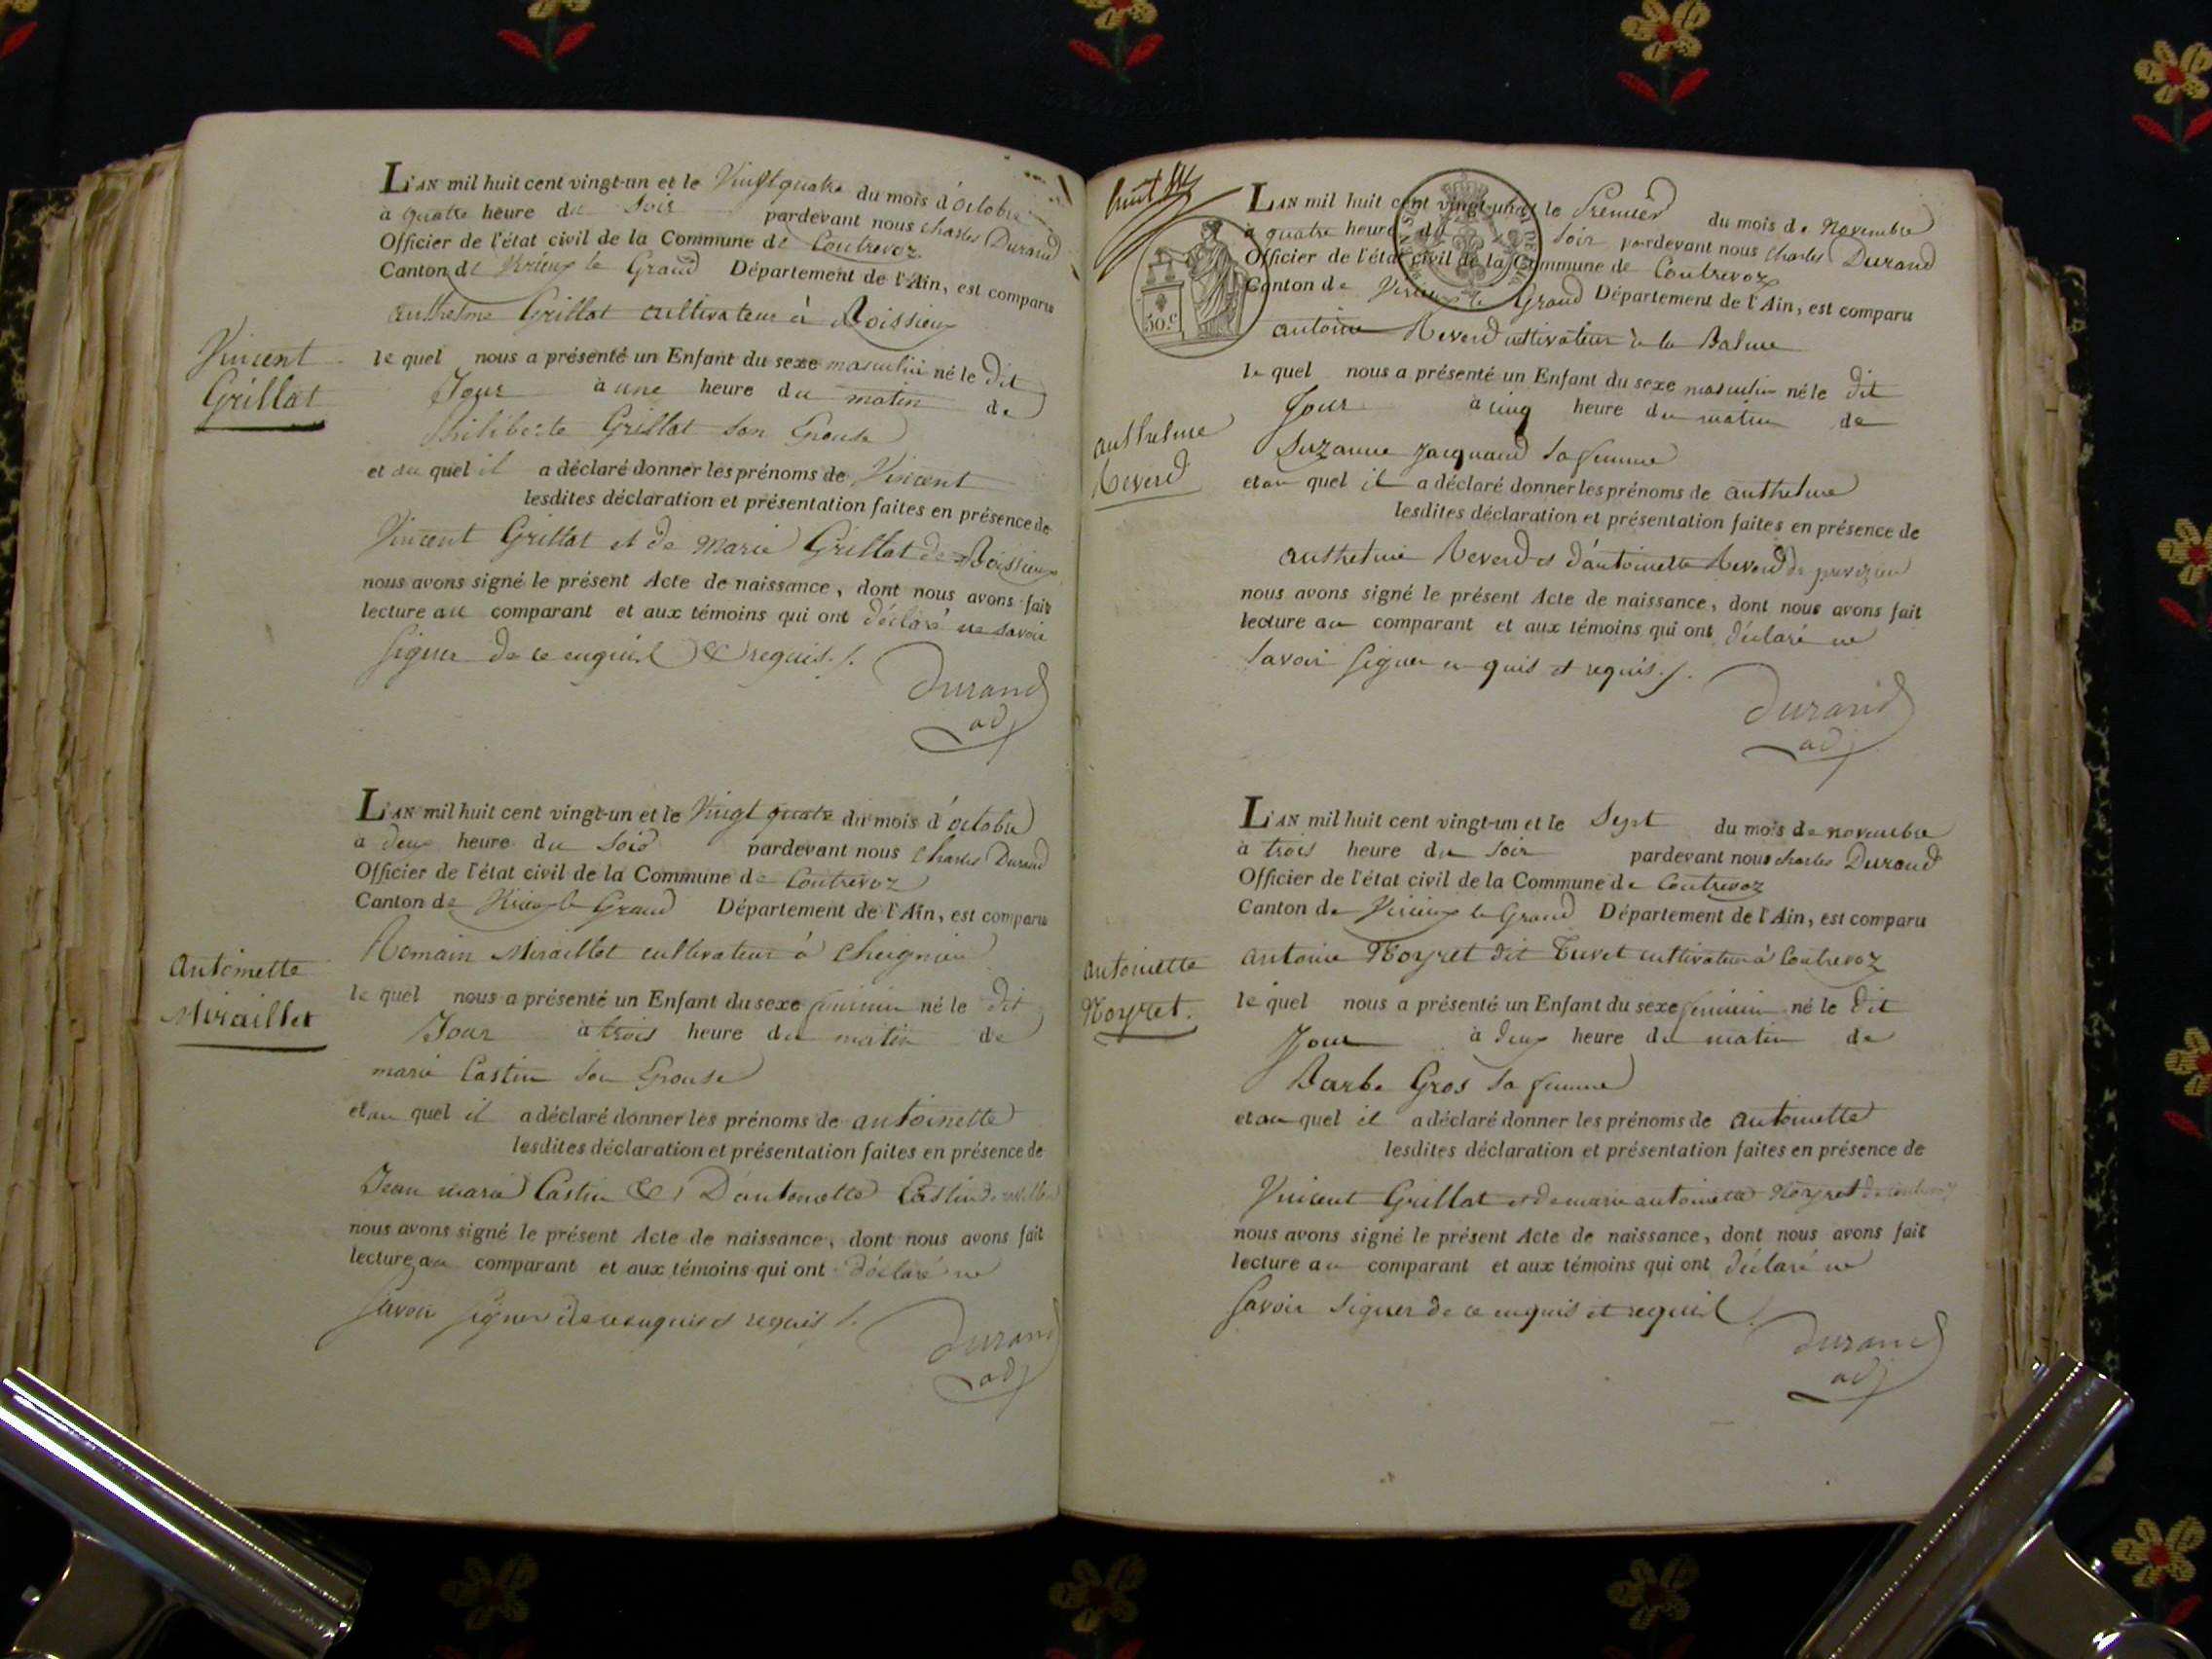 L'AN mil huit cent vingt-un et le Vingt quatre du mois d'octobre
à quatre heure du soir pardevant nous charles Durand
Officier de l'état civil de la Commune de Contrevoz
Canton de Virieux le Grand Département de l'Ain, est comparu
anthelme Grillat cultivateur à Boissieux
Vincent
Grillat
le quel nous a présenté un Enfant du sexe masculin né le dit
Jour à une heure du matin de
Philiberte Grillat son Epouse
et au quel il a déclaré donner les prénoms de Vincent
lesdites déclaration et présentation faites en présence de
Vincent Grillat et de Marie Grillat de Boissieux
nous avons signé le présent Acte de naissance, dont nous avons fait
lecture au comparant et aux témoins qui ont déclaré ne savoir
signer de ce enquis & requis ./.
Durand
adj
L'AN mil huit cent vingt-un et le Vingt quatre du mois d'octobre
à deux heure du soir pardevant nous Charles Durand
Officier de l'état civil de la Commune de Contrevoz
Canton de Virieux le Grand Département de l'Ain, est comparu
Romain Miraillet cultivateur à Cheignieu
Antoinette
Miraillet
le quel nous a présenté un Enfant du sexe feminin né le dit
Jour à trois heure du matin de
marie Castin son Epouse
et au quel il a déclaré donner les prénoms de antoinette
lesdites déclaration et présentation faites en présence de
Jean marie Castin & D'antoinette Castin
nous avons signé le présent Acte de naissance, dont nous avons fait
lecture au comparant et aux témoins qui ont déclaré ne
savoir signer de ce enquis et requis ./.
Durand
adj
huit
50.c
L'AN mil huit cent vingt-un et le Premier du mois de Novembre
à quatre heure du soir pardevant nous charles Durand
Officier de l'état civil de la Commune de Contrevoz
Canton de Virieux le Grand Département de l'Ain, est comparu
antoine Reverd cultivateur à la Balme
le quel nous a présenté un Enfant du sexe masculin né le dit
Jour à cinq heure du matin de
anthelme
Reverd
Suzanne Jacquand sa femme
et au quel il a déclaré donner les prénoms de anthelme
lesdites déclaration et présentation faites en présence de
anthelme Reverd et d'antoinette Reverd de
nous avons signé le présent Acte de naissance, dont nous avons fait
lecture au comparant et aux témoins qui ont déclaré ne
savoir signer enquis et requis ./.
Durand
adj
L'AN mil huit cent vingt-un et le Sept du mois de novembre
à trois heure du soir pardevant nous charles Durand
Officier de l'état civil de la Commune de Contrevoz
Canton de Virieux le Grand Département de l'Ain, est comparu
antoine Noyret dit Tuvet cultivateur à Contrevoz
antoinette
Noyret.
le quel nous a présenté un Enfant du sexe feminin né le dit
Jour à deux heure du matin de
Barbe Gros sa femme
et au quel il a déclaré donner les prénoms de antoinette
lesdites déclaration et présentation faites en présence de
Vincent Grillat et de marie antoinette Noyret de Contrevoz
nous avons signé le présent Acte de naissance, dont nous avons fait
lecture au comparant et aux témoins qui ont déclaré ne
savoir signer de ce enquis et requis
Durand
adj